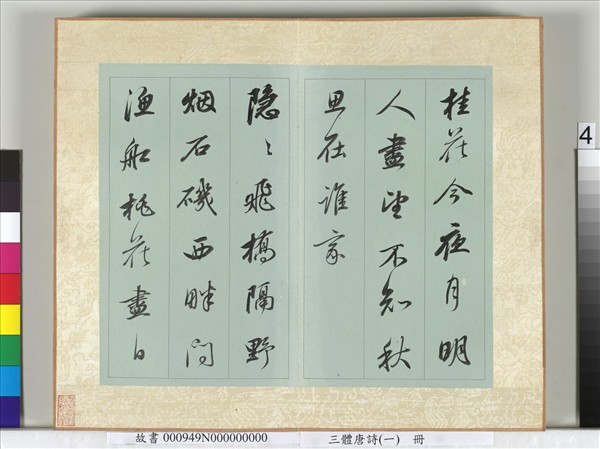 桂花今夜月明
人盡望不知秋
思在誰家
隱〻飛橋隔野
烟石磯西畔問
漁船桃花盡日
4
故書 000949N000000000
三體唐詩(一) 冊